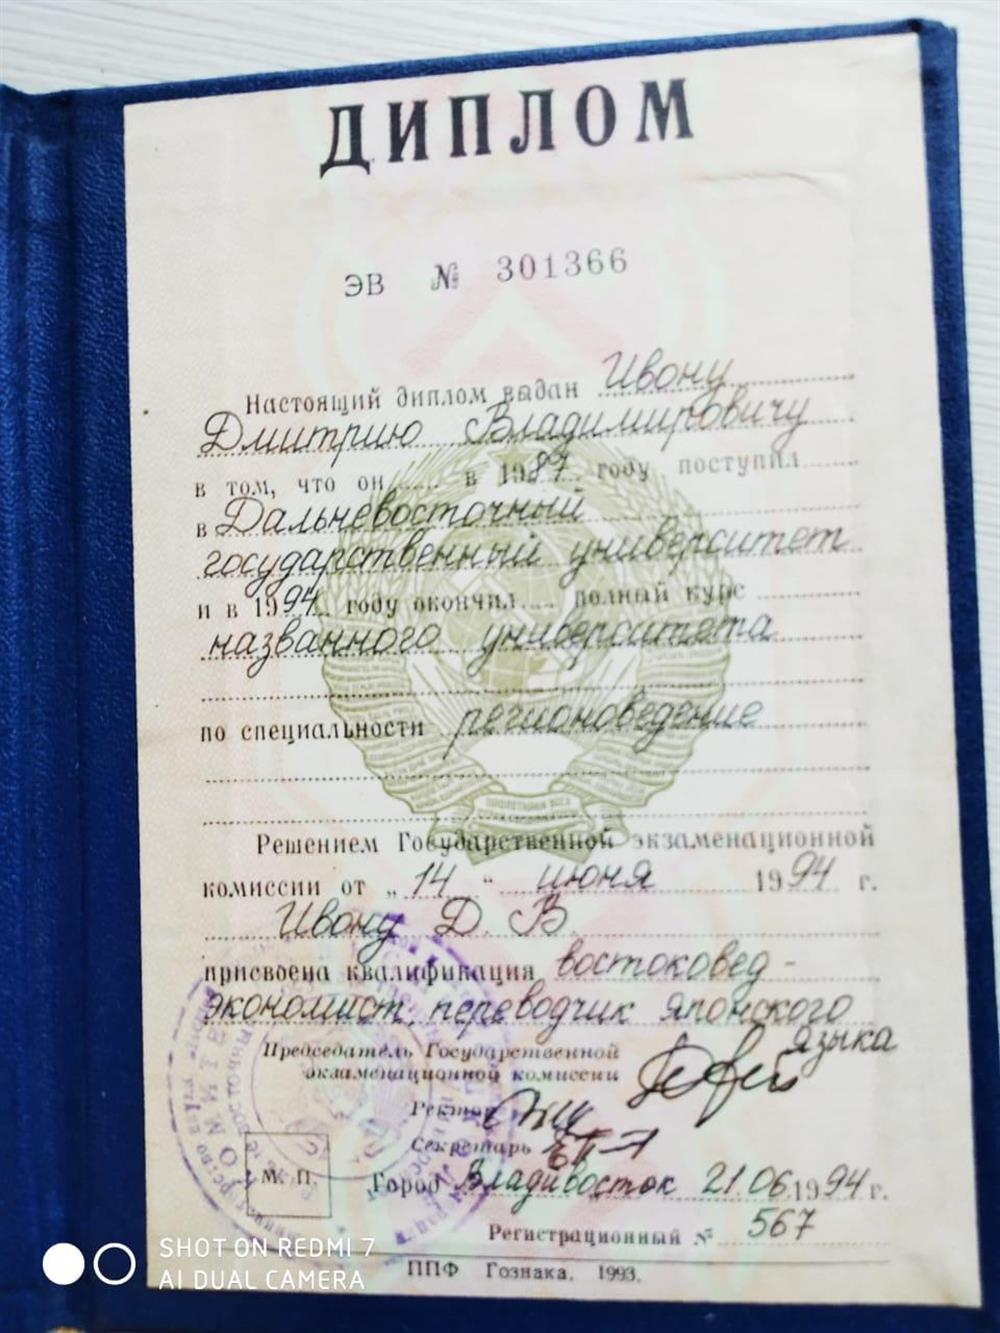 ДИПЛОМ
ЭВ № 301366
Настоящий диплом выдан Ивону
Дмитрию Владимировичу
в том, что он в 1987 году поступил
в Дальневосточный
государственный университет
и в 1994 году окончил полный курс
названного университета
по специальности регионоведение
Решением Государственной экзаменационной
комиссии от „14" июня 1994 г.
Ивону Д. В.
присвоена квалификация востоковед-
экономист, переводчик японского
языка
Председатель Государственной
экзаменационной комиссии
Ректор
Секретарь
М. П.
Город Владивосток 21.06.1994 г.
Регистрационный № 567
ППФ Гознака. 1993.
SHOT ON REDMI 7
AI DUAL CAMERA